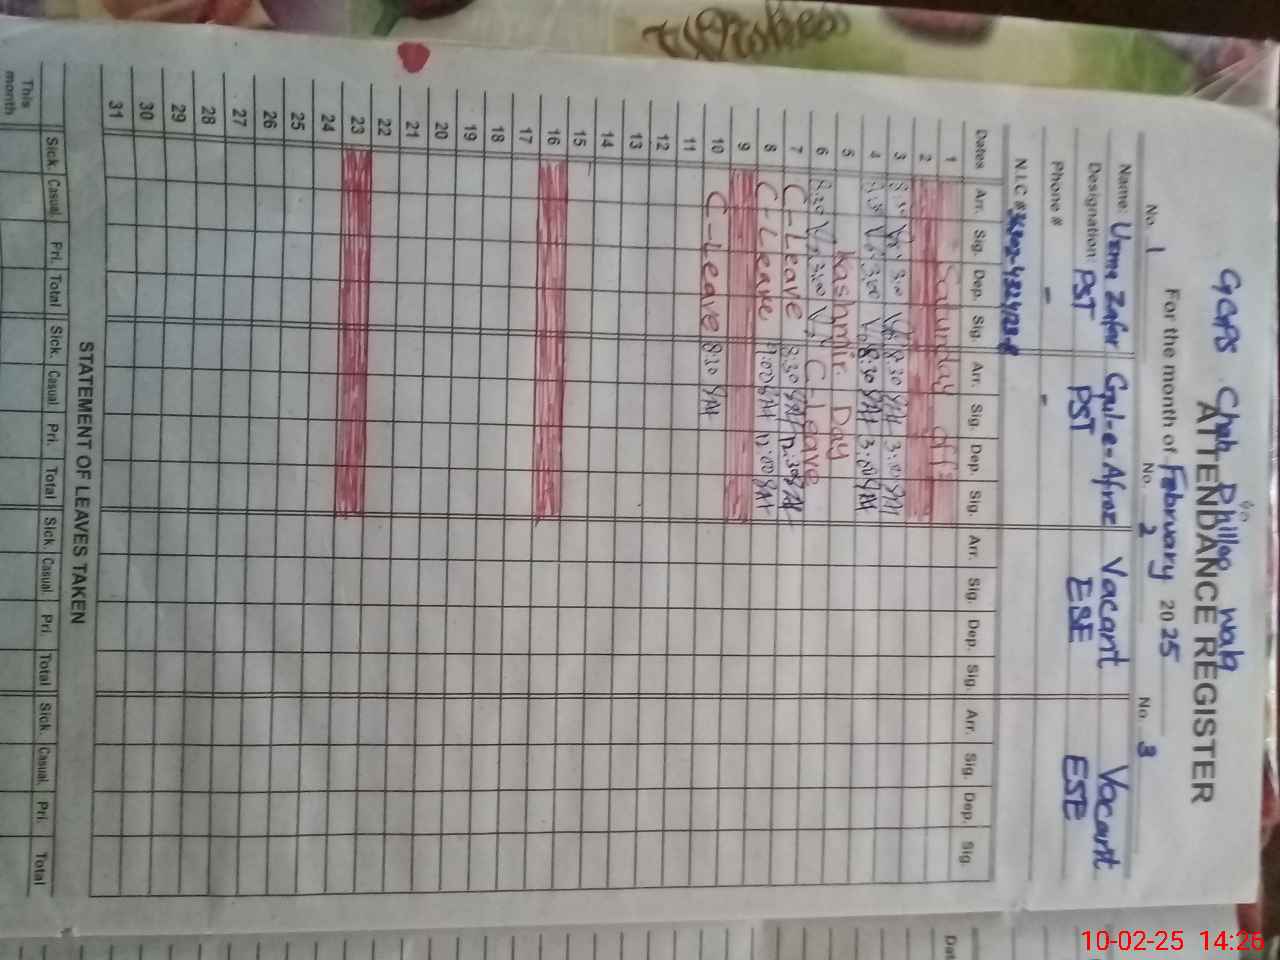 GGPS Chah Dhillon Wala
ATTENDANCE REGISTER
For the month of February 2025
No. 1 No. 2 No. 3
Name: Uzma Zafar Gul-e-Afroz Vacant Vacant
Designation: PST PST ESE ESE
Phone # - -
N.I.C #
Dates Arr. Sig. Dep. Sig. Arr. Sig. Dep. Sig. Arr. Sig. Dep. Sig. Arr. Sig. Dep. Sig.
1 Saturday off
2
3 8:30 3:00 8:30 3:00
4 8:30 3:00 8:30 3:00
5 Kashmir Day
6 8:30 3:00 C-Leave
7 C-Leave 8:30 12:30
8 C-Leave 12:00
9
10 C-Leave 8:30
11
12
13
14
15
16
17
18
19
20
21
22
23
24
25
26
27
28
29
30
31
STATEMENT OF LEAVES TAKEN
Sick. Casual. Pri. Total Sick. Casual Pri. Total Sick. Casual. Pri. Total Sick. Casual. Pri. Total
This month
Dat
10-02-25 14:26